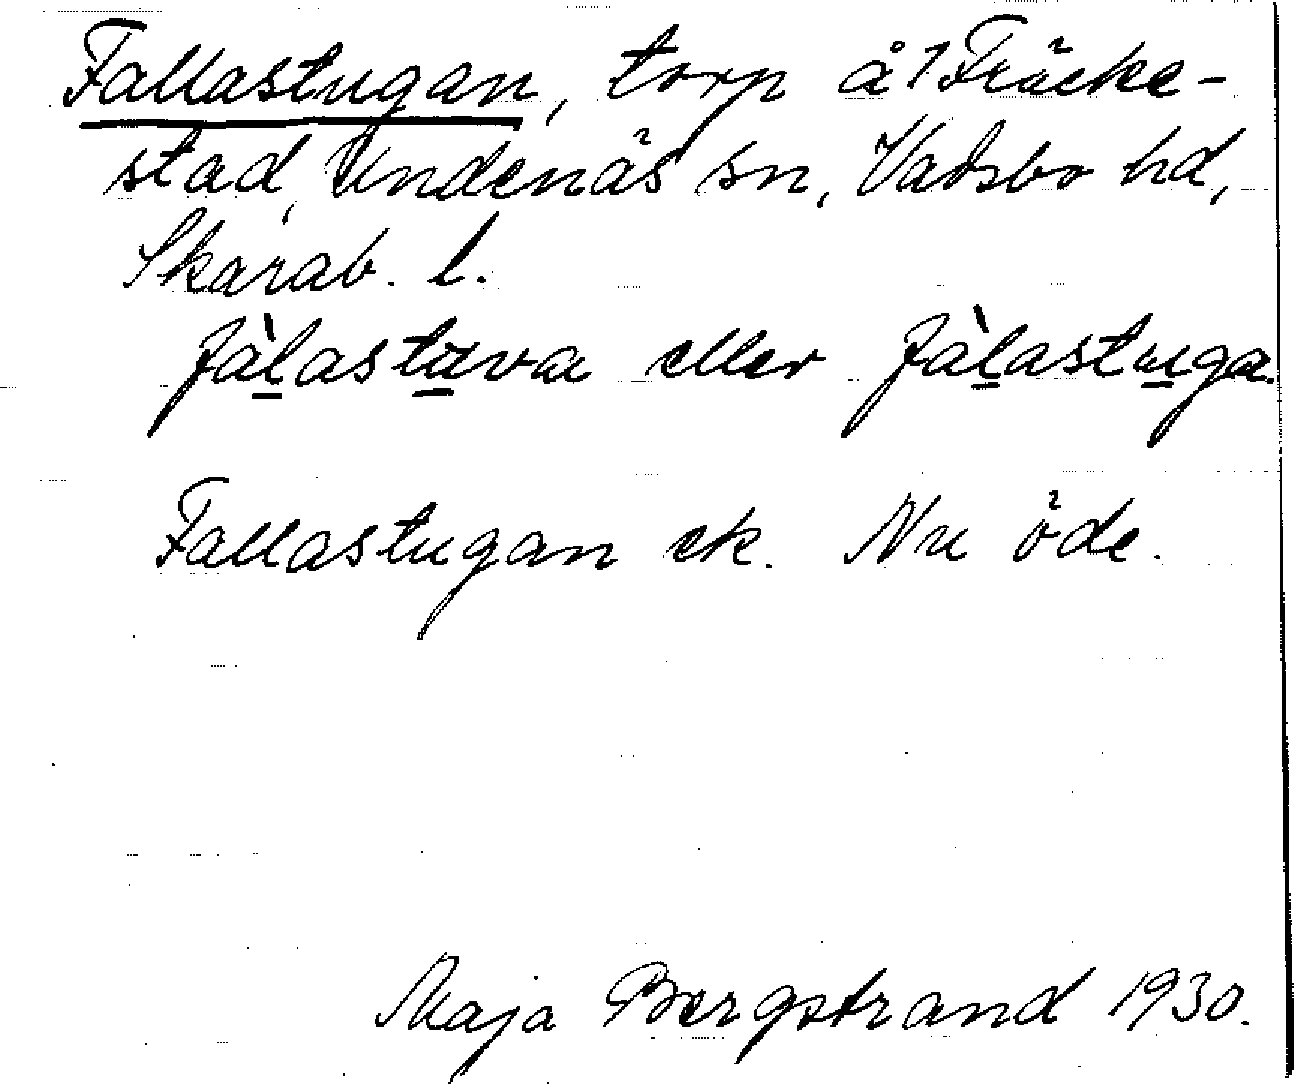 Fallastugan, torp å 1 Fräcke-
stad, Undenäs sn, Vadsbo hd,
Skarab. l.
fàlastuva eller fàlastuga.
Fallastugan ek. Nu öde.
Maja Bergstrand 1930.